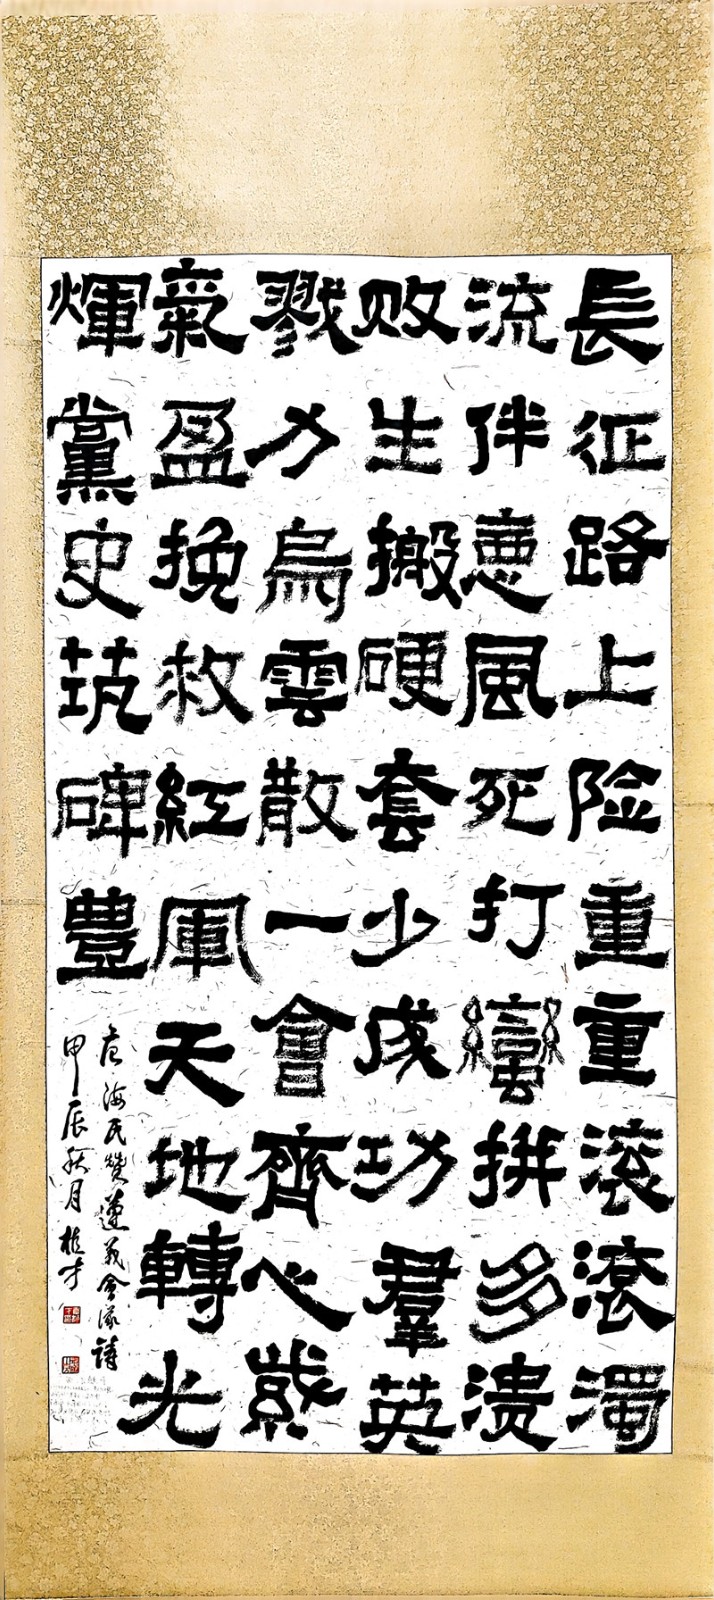 長征路上险重重滚滚濁
流伴惡風死打蠻拼多溃
败生搬硬套少成功羣英
戮力烏雲散一會齊心紫
氣盈挽救紅軍天地轉光
輝黨史筑碑豊
范海民赞遵義會議詩
甲辰秋月植才